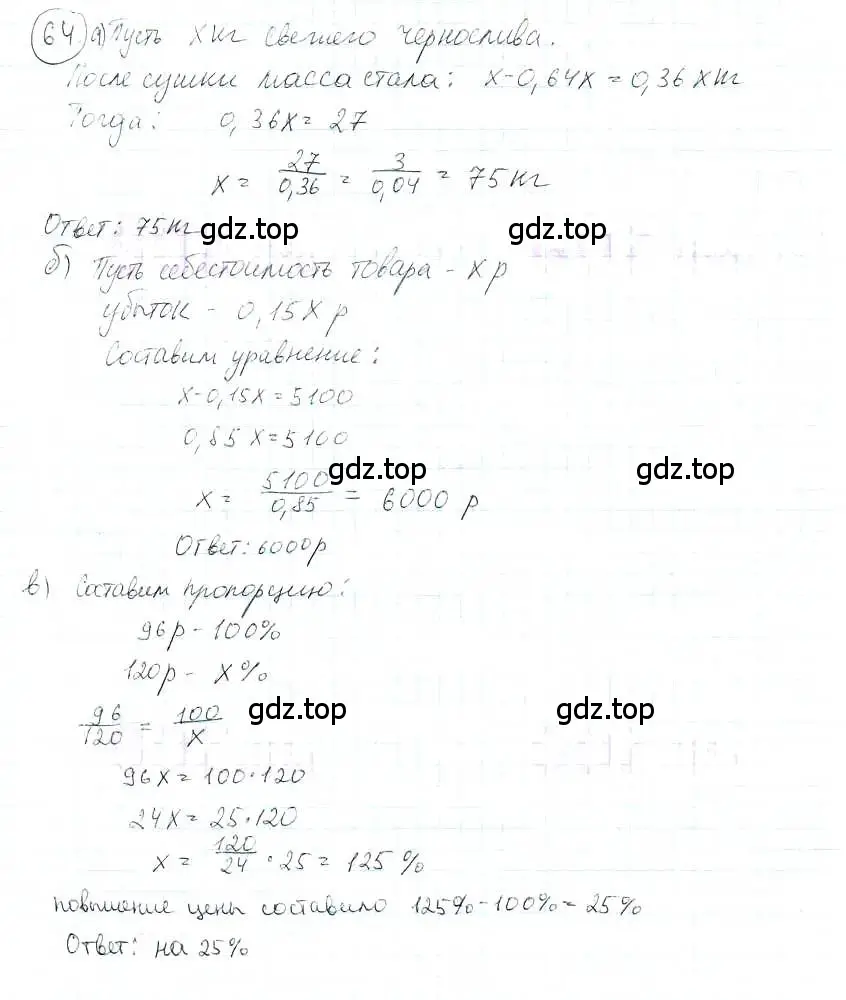 64 а) Пусть х кг свежего чернослива.
После сушки масса стала: х-0,64х = 0,36 х кг
Тогда: 0,36х = 27
х = 27/0,36 = 3/0,04 = 75 кг
Ответ: 75 кг gdz.top gdz.top
б) Пусть себестоимость товара - х р
убыток - 0,15 х р
Составим уравнение:
х-0,15х = 5100
0,85 х = 5100
gdz.top gdz.top
х = 5100/0,85 = 6000 р
Ответ: 6000р
в) Составим пропорцию:
96р - 100%
120р - х%
96/120 = 100/х gdz.top gdz.top
96х = 100·120
24х = 25·120
х = 120/24 · 25 = 125 %
повышение цены составило 125% - 100% = 25%
Ответ: на 25%